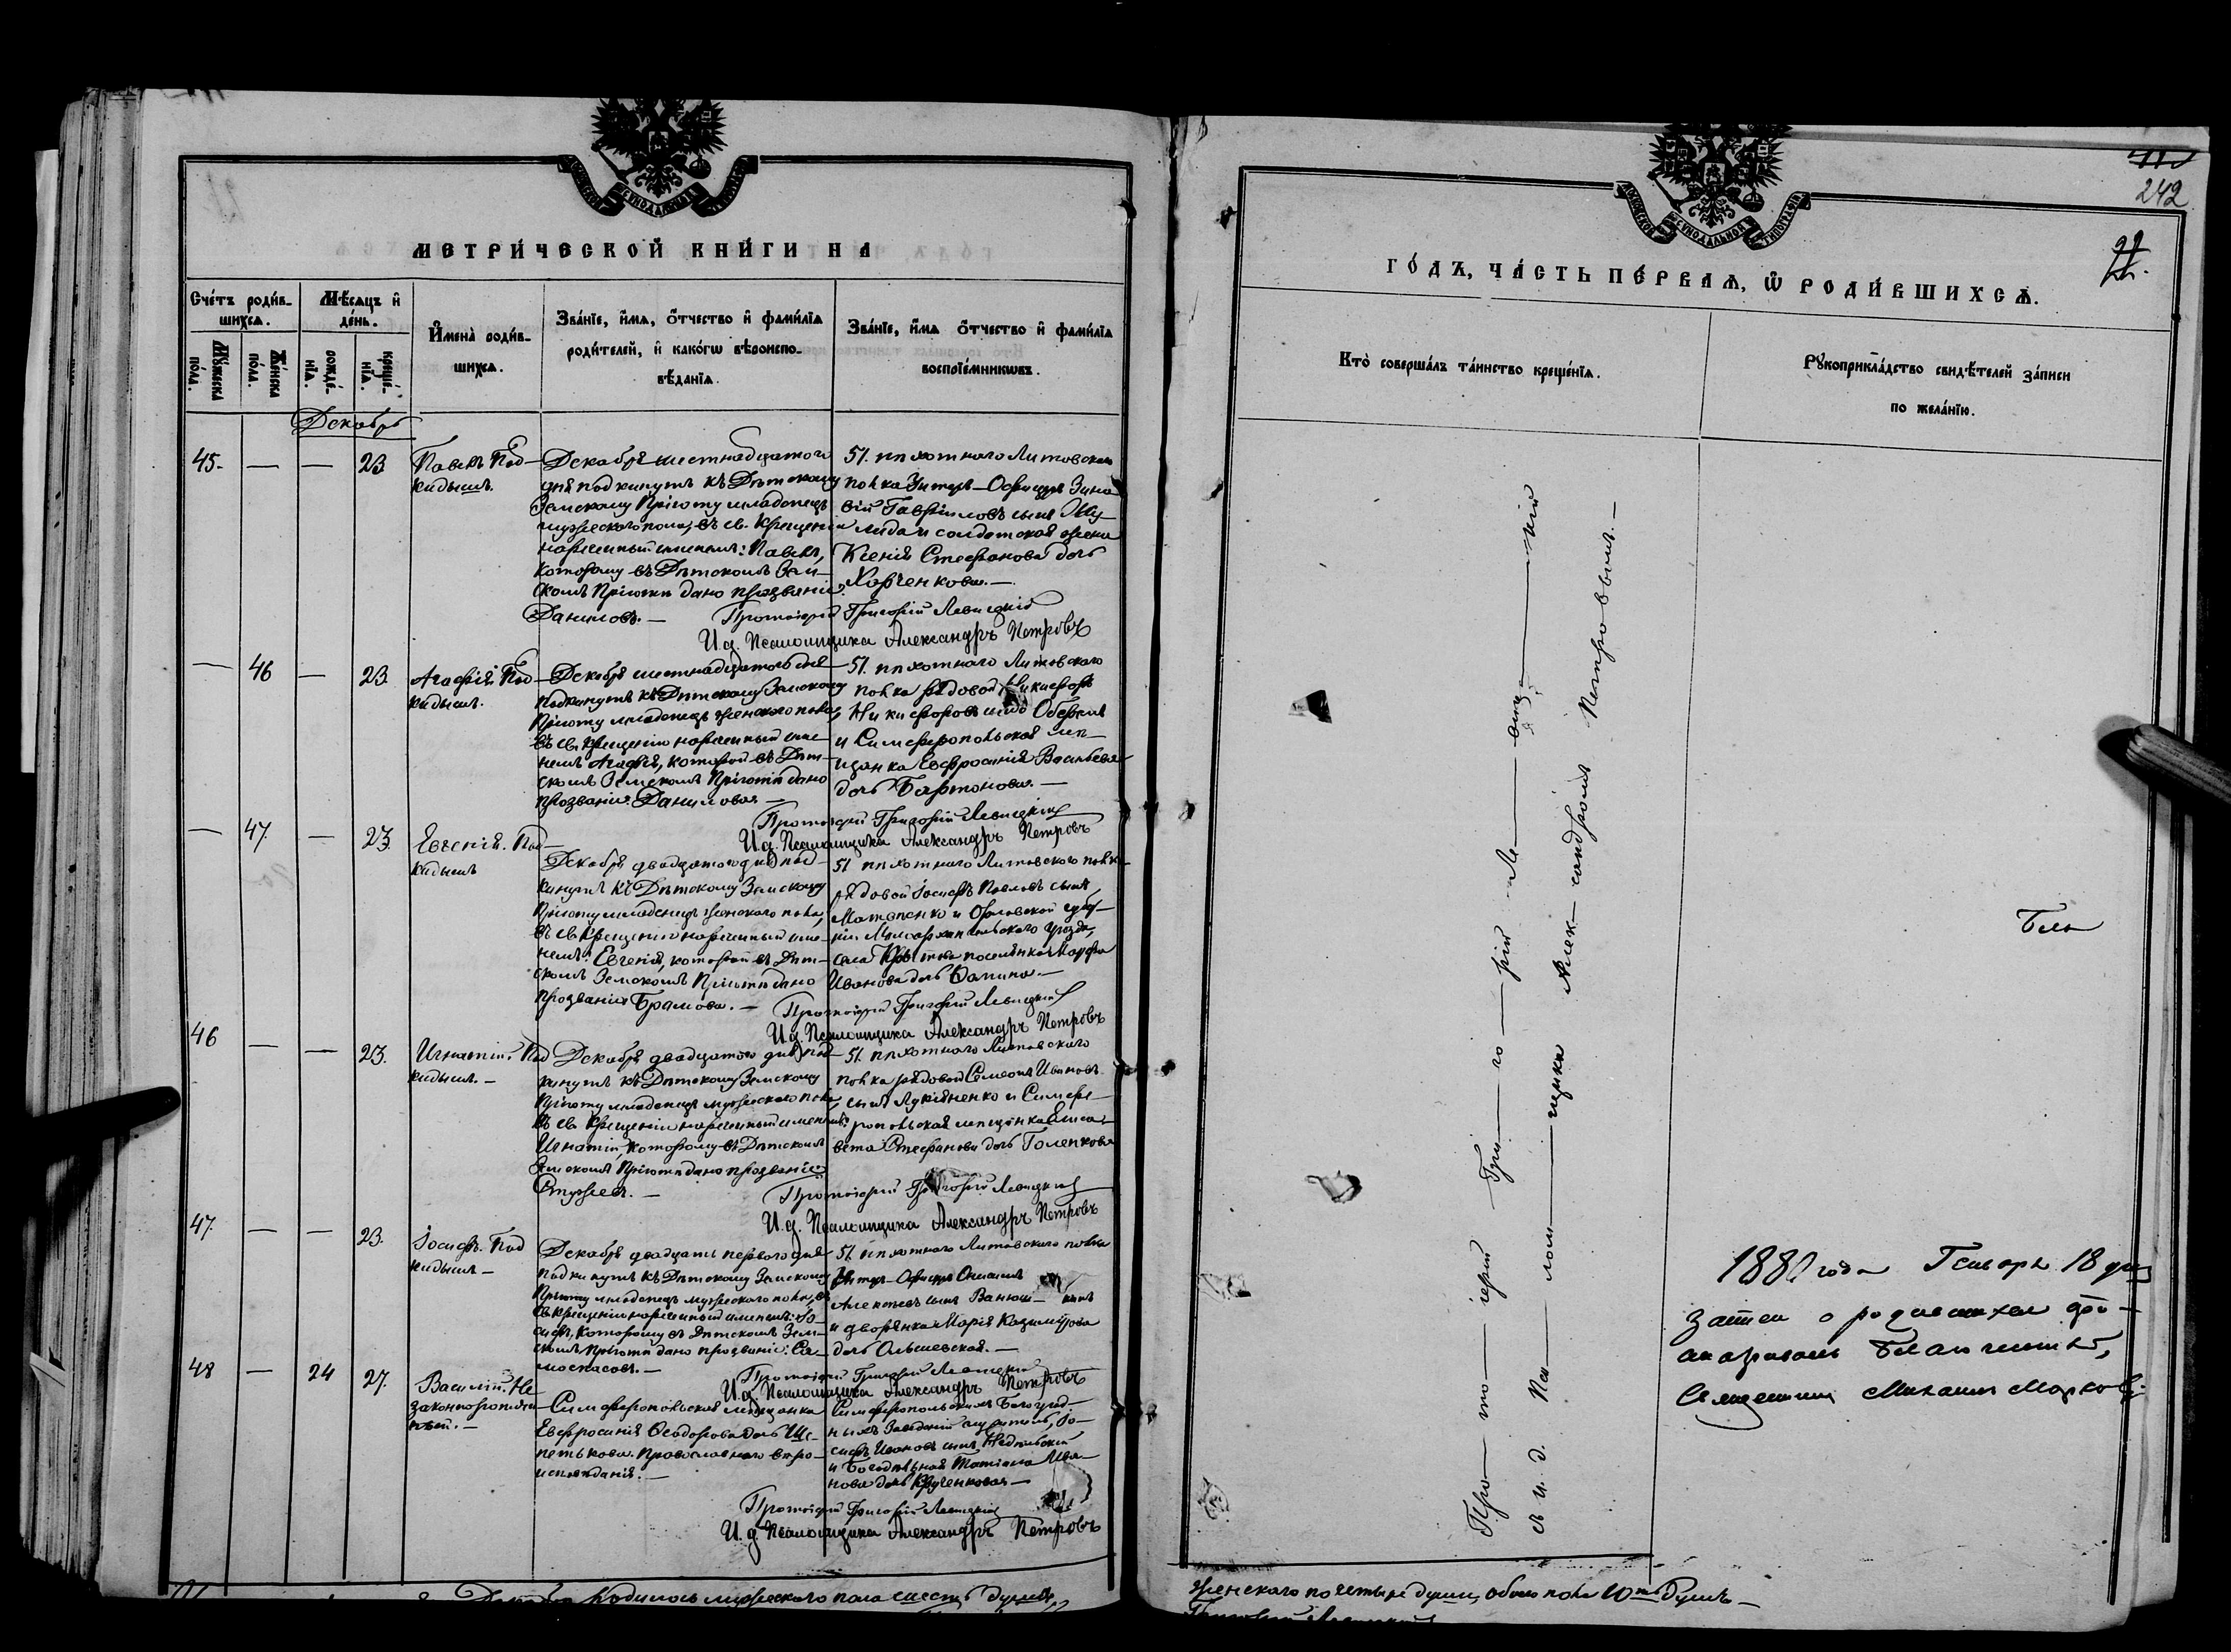 МЕТРИЧЕСКОЙ КНИГИ НА
Счетъ родив-
шихся.
Мѣсяцъ и
день.
Имена родив-
шихся.
Званіе, имя, отчество и фамилія
родителей, и какогѡ вѣроиспо-
вѣданія.
Званіе, имя отчество и фамилія
воспріемникѡвъ.
Мужеска
пола.
Женска
пола.
рожде-
нія.
креще-
нія.
Декабрь
45. — — 23
Павелъ Под-
кидышъ.
Декабря шестнадцатого
дня подкинутъ къ Дѣтскому
Земскому Пріюту младенецъ
мужескаго пола, въ св. Крещеніи
нареченный именемъ: Павелъ,
которому въ Дѣтскомъ Зем-
скомъ Пріютѣ дано прозваніе
Даниловъ. —
51. пѣхотнаго Литовскаго
полка Унтеръ-Офицеръ Зино-
вій Гавриловъ сынъ
и солдатская жена
Ксенія Стефанова дочь
Харченкова. —
Протоіерей Григорій Левицкій
И. д. Псаломщика Александръ Петровъ
— 46 — 23
Агафія Под-
кидышъ.
Декабря шестнадцатого дня
подкинутъ къ Дѣтскому Земскому
Пріюту младенецъ женскаго пола,
въ св. Крещеніи нареченный име-
немъ Агафія, которой въ Дѣт-
скомъ Земскомъ Пріютѣ дано
прозваніе Данилова —
51. пѣхотнаго Литовскаго
полка рядовой Никифоръ
Никифоровъ сынъ
и Симферопольская мѣ-
щанка Евфросинія Васильева
дочь Бартонова. —
Протоіерей Григорій Левицкій
И. д. Псаломщика Александръ Петровъ
— 47. — 23.
Евгенія. Под-
кидышъ
Декабря двадцатого дня под-
кинутъ къ Дѣтскому Земскому
Пріюту младенецъ женскаго пола,
въ св. Крещеніи нареченный име-
немъ: Евгенія, которой въ Дѣт-
скомъ Земскомъ Пріютѣ дано
прозваніе Брамова. —
51 пѣхотнаго Литовскаго полка
рядовой Іосифъ Павловъ сынъ
и Орловской губер-
ніи уѣзда,
села поселянка Марфа
Иванова дочь —
Протоіерей Григорій Левицкій
И. д. Псаломщика Александръ Петровъ
46 — — 23.
Игнатій. Под
кидышъ. —
Декабря двадцатого дня под-
кинутъ къ Дѣтскому Земскому
Пріюту младенецъ мужескаго пола,
въ св. Крещеніи нареченный именемъ:
Игнатій, которому въ Дѣтскомъ
Земскомъ Пріютѣ дано прозваніе
Стужневъ. —
51. пѣхотнаго Литовскаго
полка рядовой Семеонъ Ивановъ
сынъ Лукіяненко и Симфе-
ропольская мѣщанка Елиса-
вета Стефанова дочь Голенкова
Протоіерей Григорій Левицкій
И. д. Псаломщика Александръ Петровъ
47. — — 23.
Іосифъ. Под
кидышъ —
Декабря двадцать перваго дня
подкинутъ къ Дѣтскому Земскому
Пріюту младенецъ мужескаго пола, въ
св. Крещеніи нареченный именемъ: Іо-
сифъ, которому въ Дѣтскомъ Зем-
скомъ Пріютѣ дано прозваніе: Са-
моспасовъ. —
51. пѣхотнаго Литовскаго полка
Унтеръ-Офицеръ
Алексѣевъ сынъ
и дворянка Марія Казимірова
дочь Ольшевская. —
Протоіерей Григорій Левицкій
И. д. Псаломщика Александръ Петровъ
48 — 24 27.
Василій. Не
законнорожден
ный. —
Симферопольская мѣщанка
Евфросинія Ѳеодорова дочь Ще-
петькова. Православнаго вѣро-
исповѣданія. —
Симферопольскихъ Богоугод-
ныхъ Заведеній служитель, Іо-
сифъ Ивановъ сынъ Недѣльскій
и Татіана Ива-
нова дочь Крученкова —
Протоіерей Григорій Левицкій
И. д. Псаломщика Александръ Петровъ
Декабрѣ Родилось мужескаго пола шесть душъ,
242
ГОДЪ, ЧАСТЬ ПЕРВАЯ, Ѡ РОДИВШИХСЯ.
Кто совершалъ таинство крещенія.
Рукоприкладство свидѣтелей записи
по желанію.
Про— то— іерей Гри— го— рій Ле— виц— кій
съ и. д. Пса— лом— щика Алек— сандромъ Петровымъ. —
1881 года Генваря 18 дня
Благочинный,
Священникъ Михаилъ
женскаго четыре души, обоего пола 10ть душъ —
Григорій Левицкій